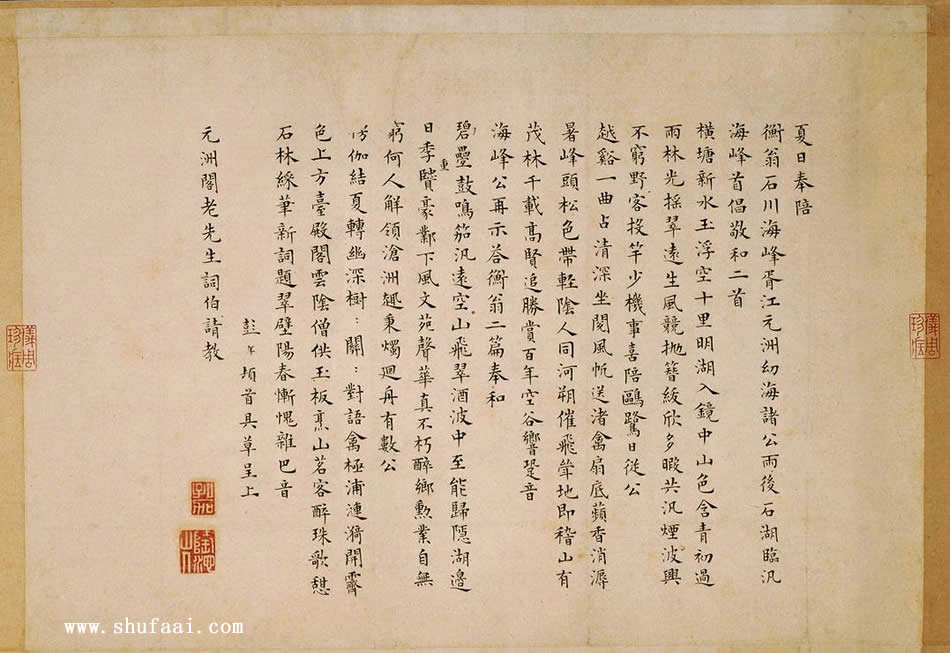 夏日奉陪
衡翁石川海峰胥江元洲幼海諸公雨後石湖臨汎
海峰首倡敬和二首
橫塘新水玉浮空十里明湖入鏡中山色含青初過
雨林光摇翠遠生風競抛簪紱欣多暇共汎煙波興
不窮野客投竿少機事喜陪鷗鷺日從公
越谿一曲占清深坐閱風帆送渚禽扇底蘋香消溽
暑峰頭松色帶輕陰人同河朔催飛斝地即稽山有
茂林千載髙賢追勝賞百年空谷響跫音
海峰公再示荅衡翁二篇奉和
碧疊鼓鳴笳汎遠空山飛翠酒波中至能歸隱湖邊
重
日季鹰豪鄴下風文苑聲華真不朽醉鄉勲業自無
窮何人解領滄洲趣秉燭迴舟有數公
伽結夏轉幽深樹:關:對語禽極浦漣漪開霽
色上方臺殿閣雲陰僧供玉板烹山茗客醉珠歌憩
石林綵筆新詞題翠壁陽春慚愧雜巴音
彭年頓首具草呈上
元洲閣老先生詞伯請教
儀周
珍藏
儀周
珍藏
孔加
隆池
山人
www.shufaai.com